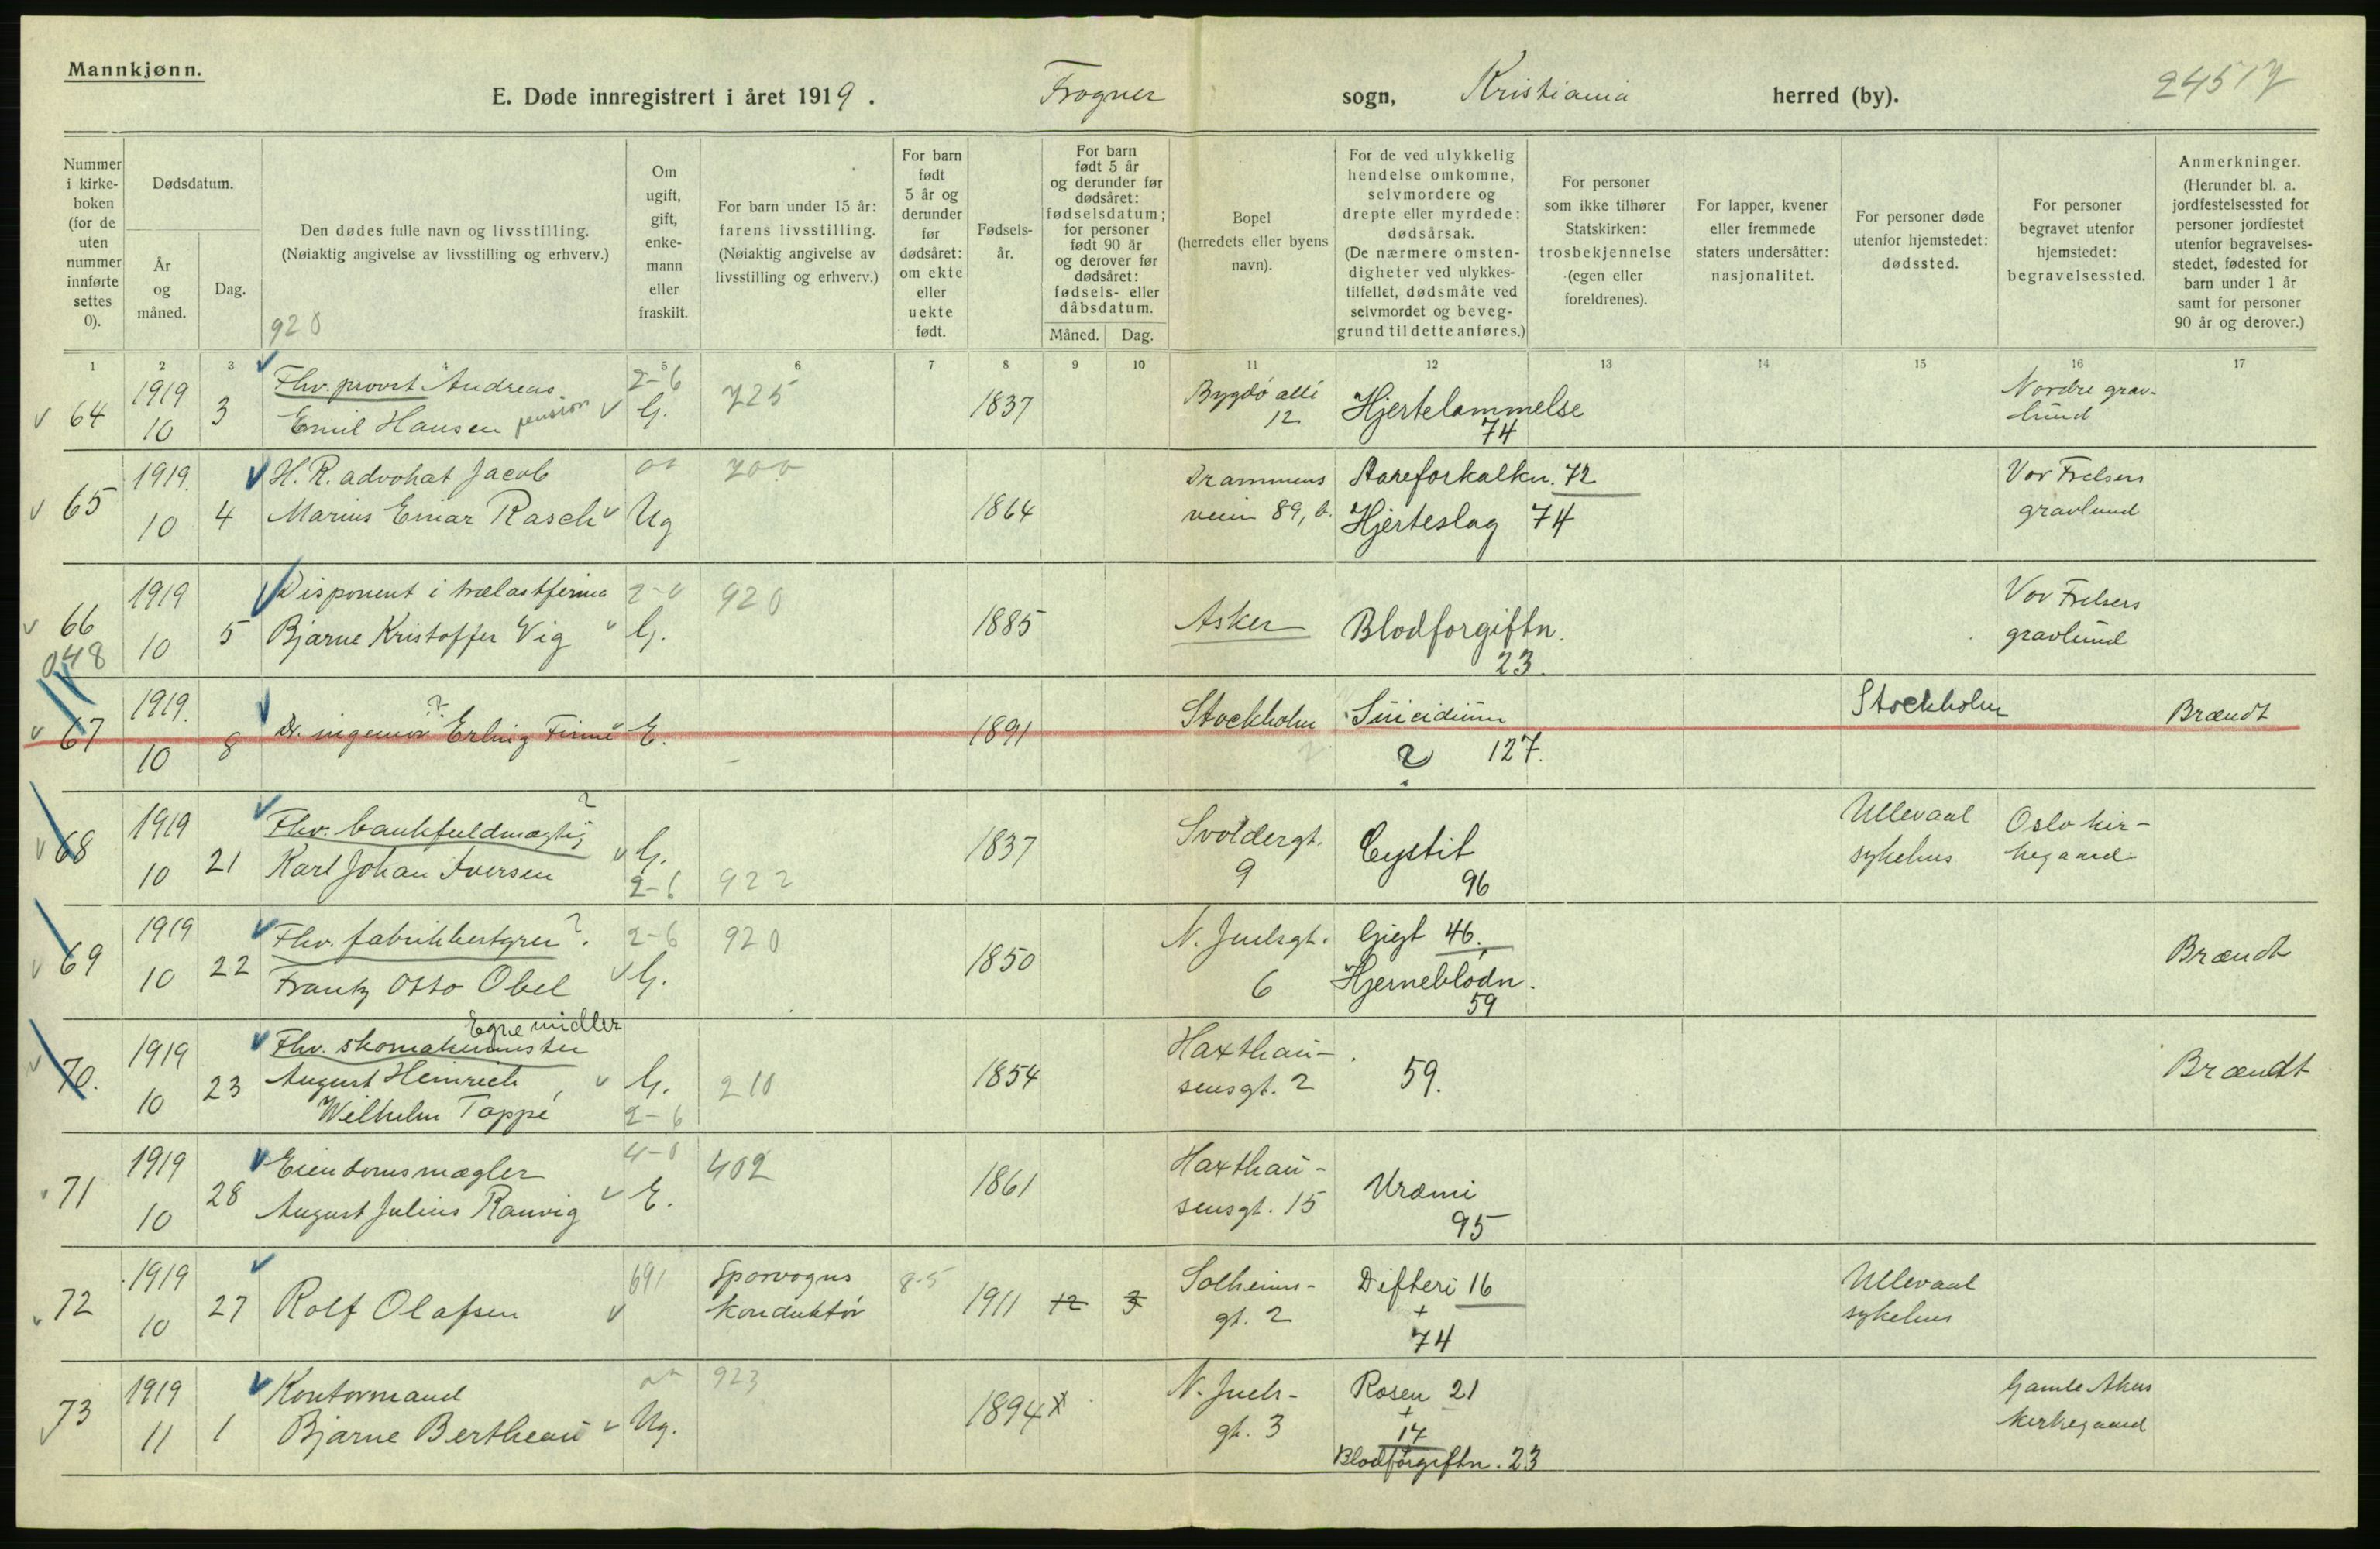 Mannkjønn.
E. Døde innregistrert i året 1919. Frogner sogn, Kristiania herred (by). 24517
Nummer i kirke-boken (for de uten nummer innførte settes 0).
Dødsdatum.
År og måned.
Dag.
Den dødes fulle navn og livsstilling.
(Nøiaktig angivelse av livsstilling og erhverv.)
920
Om ugift, gift, enke-mann eller fraskilt.
For barn under 15 år:
farens livsstilling.
(Nøiaktig angivelse av livsstilling og erhverv.)
For barn født 5 år og derunder før dødsåret: om ekte eller uekte født.
Fødsels-år.
For barn født 5 år og derunder før dødsåret: fødselsdatum; for personer født 90 år og derover før dødsåret: fødsels- eller dåbsdatum.
Måned. Dag.
Bopel
(herredets eller byens navn).
For de ved ulykkelig hendelse omkomne, selvmordere og drepte eller myrdede: dødsårsak.
(De nærmere omsten-digheter ved ulykkes-tilfellet, dødsmåte ved selvmordet og beveg-grund til dette anføres.)
For personer som ikke tilhører Statskirken: trosbekjennelse (egen eller foreldrenes).
For lapper, kvener eller fremmede staters undersåtter: nasjonalitet.
For personer døde utenfor hjemstedet: dødssted.
For personer begravet utenfor hjemstedet: begravelsessted.
Anmerkninger.
(Herunder bl. a. jordfestelsessted for personer jordfestet utenfor begravelses-stedet, fødested for barn under 1 år samt for personer 90 år og derover.)
1 2 3 4 5 6 7 8 9 10 11 12 13 14 15 16 17
64 1919 10 3 Fhv. provst Andreas Emil Hansen pension 2-6 G. 725 1837 Bygdø allé 12 Hjertelammelse 74 Nordre grav-lund
65 1919. 10 4 H. R. advokat Jacob Marius Einar Rasch Ug 700 1864 Drammens veien 89, b. Aareforkalkn. 72 Hjerteslag 74 Vor Frelsers gravlund
66 048 1919 10 5 Disponent i trælastfirma Bjarne Kristoffer Vig 2-0 G. 920 1885 Asker Blodforgiftn. 23. Vor Frelsers gravlund
67 1919. 10 8 ingeniør ? Erling E. 1891 Stockholm Suicidium ? 127. Stockholm Brændt
68 1919 10 21 Fhv. bankfuldmægtig ? Karl Johan Iversen G. 2-6 922 1837 Svoldergt. 9 Cystit 96 Ullevaal sykehus Oslo kir-kegaard
69 1919 10 22 Fhv. fabrikkbestyrer ? Frantz Otto Obel 2-6 G. 920 1850 N. Juelsgt. 6 Gigt 46. Hjerneblødn. 59 Brændt
70. 1919 10 23 Fhv. skomakermester Egne midler August Heinrich Wilhelm Tappé G. 2-6 210 1854 Haxthau-sensgt. 2 59. Brændt
71 1919 10 28 Eiendomsmægler August Julius Ranvig 4-0 E. 402 1861 Haxthau-sensgt. 15 Uræmi 95
72 1919 10 27 Rolf Olafsen 691 Sporvogns konduktør 8-5 1911 12 3 Solheims-gt. 2 Difteri 16 + 74 Ullevaal sykehus
73 1919 11 1 Kontormand Bjarne Bertheau Ug. 923 1894 x N. Juels-gt. 3 Rosen 21 + 17 Blodforgiftn. 23 Gamle Akers kirkegaard